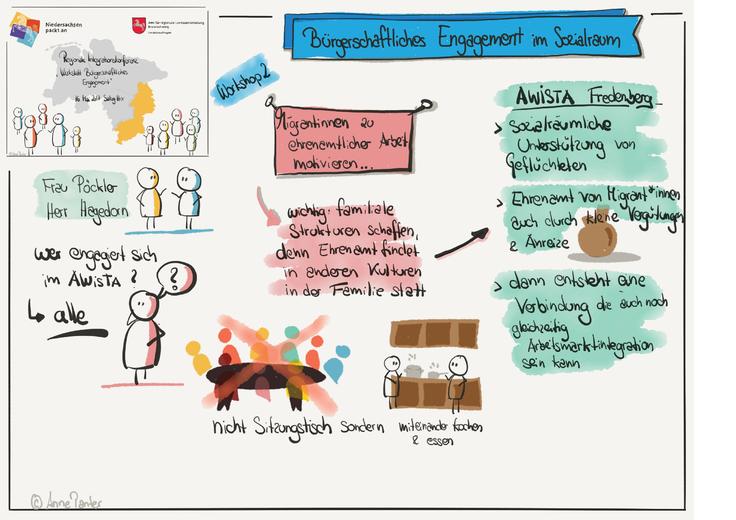 Niedersachsen
packt an.
Regionale Integrationskonferenz
"Werkstatt Bürgerschaftliches
Engagement"
Bürgerschaftliches Engagement im Sozialraum
Workshop 2
Migrantinnen zu
ehrenamtlicher Arbeit
motivieren...
Frau Päckler
Herr Hagedorn
wer engagiert sich
im AWiSTA ?
alle
?
wichtig: familiale
Strukturen schaffen,
denn Ehrenamt findet
in anderen Kulturen
in der Familie statt
nicht Sitzungstisch sondern
miteinander kochen
& essen
AWiSTA Fredenberg
> sozialräumliche
Unterstützung von
Geflüchteten
> Ehrenamt von Migrant*innen
auch durch kleine Vergütungen
& Anreize
> dann entsteht eine
Verbindung die auch noch
gleichzeitig
Arbeitsmarktintegration
sein kann